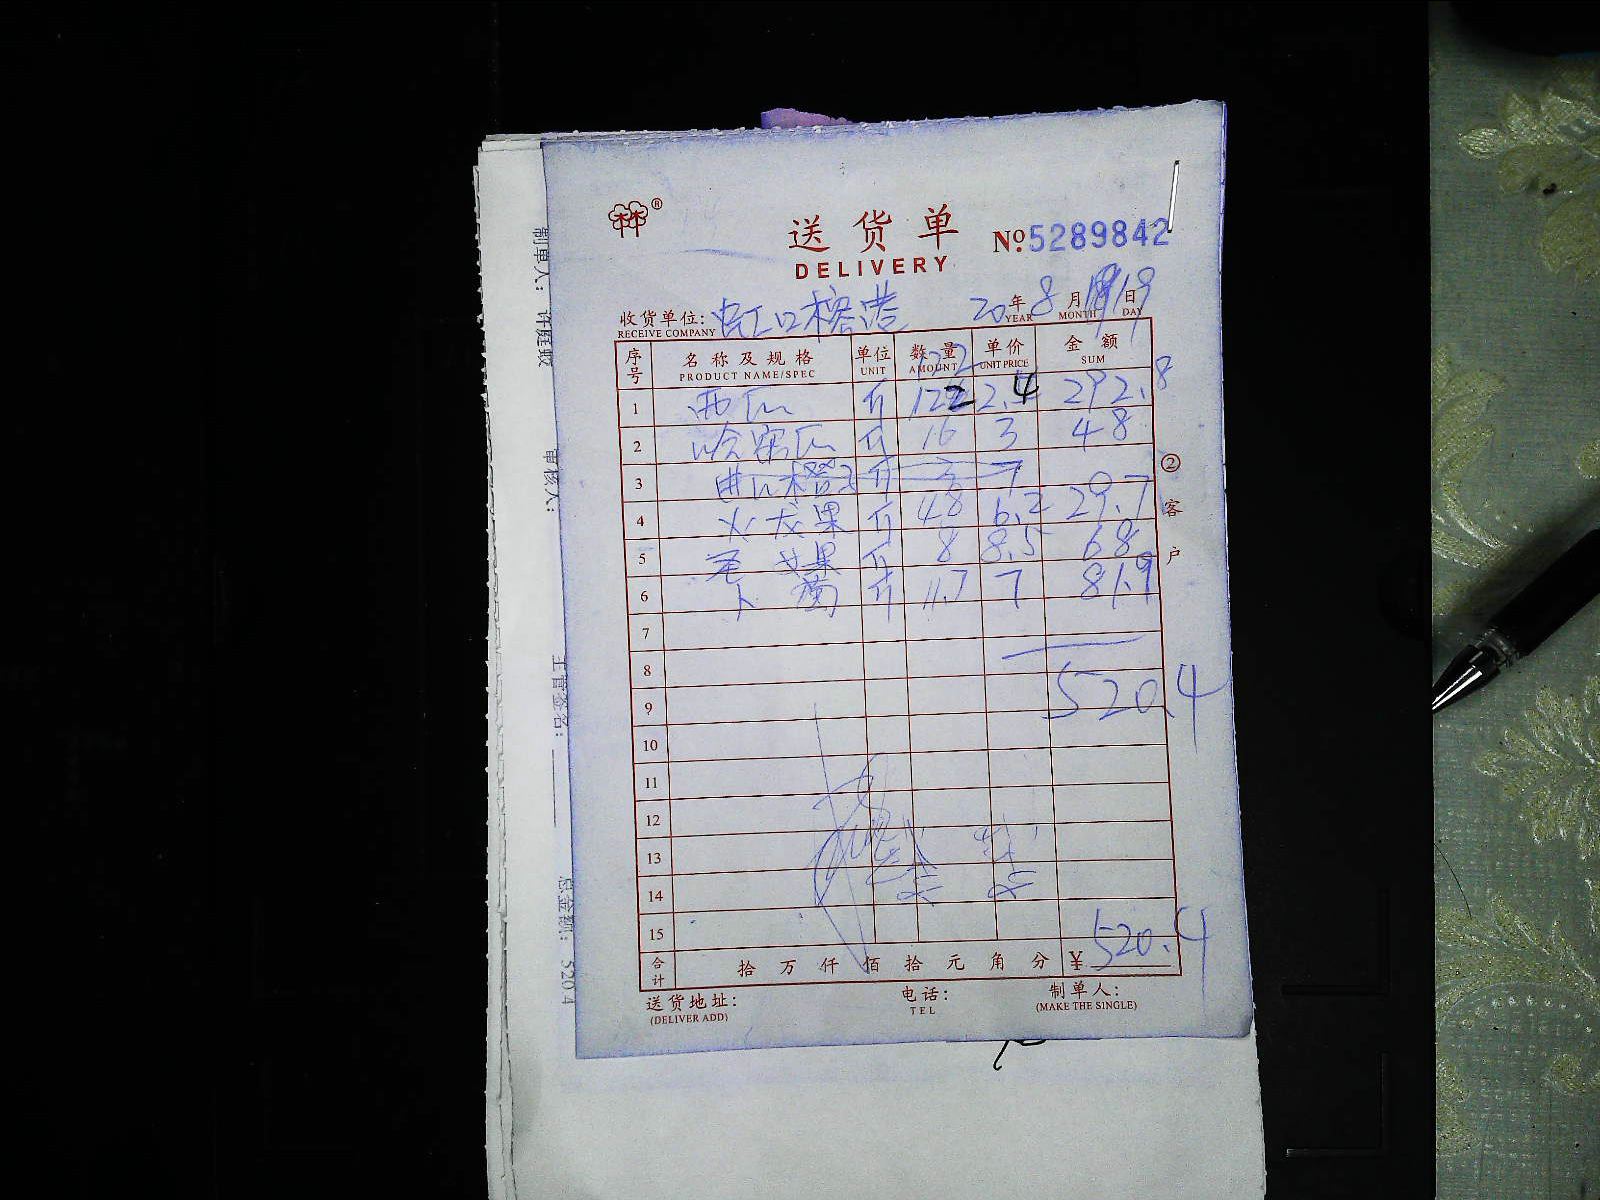 送货单
№ 5289842
DELIVERY
收货单位: 虹口榕港 20年8月19日
RECEIVE COMPANY YEAR MONTH DAY
序号 名称及规格 单位 数量 单价 金额
PRODUCT NAME/SPEC UNIT AMOUNT UNIT PRICE SUM
1 西瓜 斤 122 2.4 292.8
2 哈密瓜 斤 16 3 48
3 斤 3 7
4 火龙果 斤 4.8 6.2 29.7
5 果 斤 8 8.5 68
6 斤 11.7 7 81.9
7
8
9 520.4
10
11
12
13
14
15
合计 拾万仟佰拾元角分 ¥ 520.4
送货地址: 电话: 制单人:
(DELIVER ADD) TEL (MAKE THE SINGLE)
②客户
制单人: 许庭
审核人:
主管签名:
总金额: 520.4